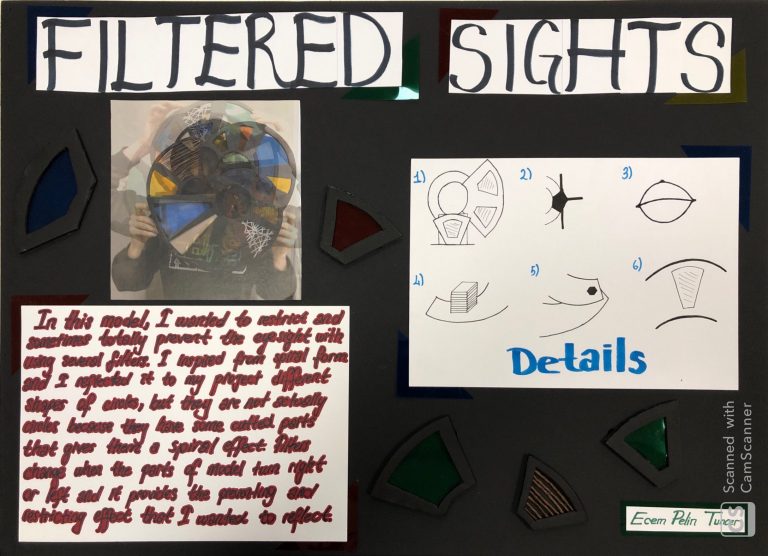 FILTERED SIGHTS
In this model, I wanted to restrict and
sometimes totally prevent the eyesight with
using several filters. I inspired from spiral form
and I reflected it to my project different
shapes of circles, but they are not actually
circles because they have some cutted parts
that gives them a spiral effect. Filters
change when the parts of model turn right
or left and it provides the preventing and
restricting effect that I wanted to reflect.
1) 2) 3)
4) 5) 6)
Details
Ecem Pelin Tuncer
Scanned with
CamScanner
CS